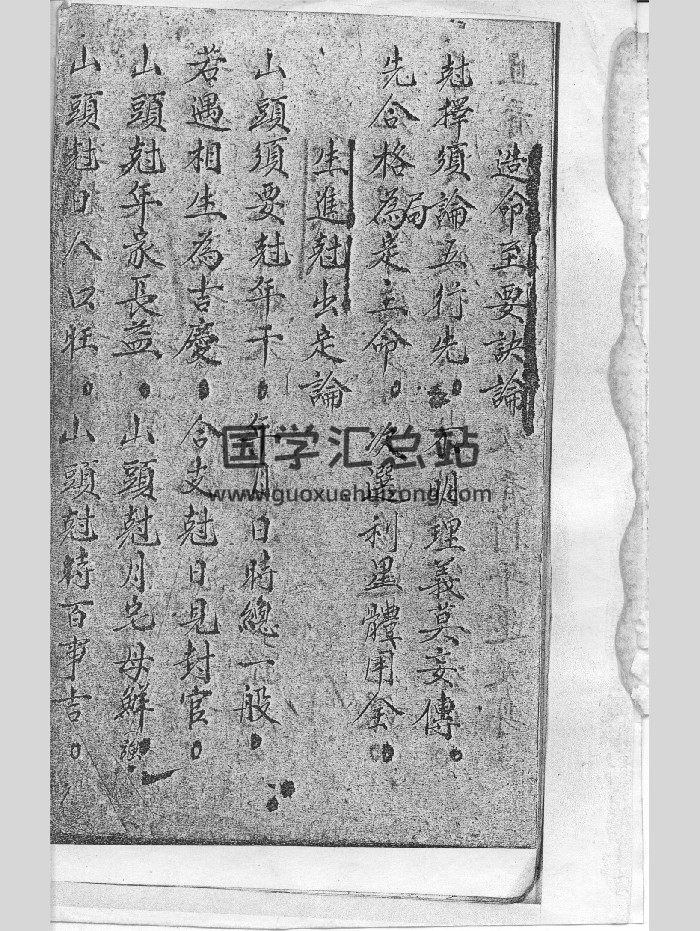 造命至要訣論
尅擇須論五行先。不明理義莫妄傳。
先合格局為定主命。次選利星體用全。
生進尅出定論
山頭須要尅年干。年月日時總一般。
若遇相生為吉慶。合支尅日見封官。
山頭尅年家長益。山頭尅月宅母鮮。
山頭尅日人口旺。山頭尅時百事吉。
国学汇总站
www.guoxuehuizong.com